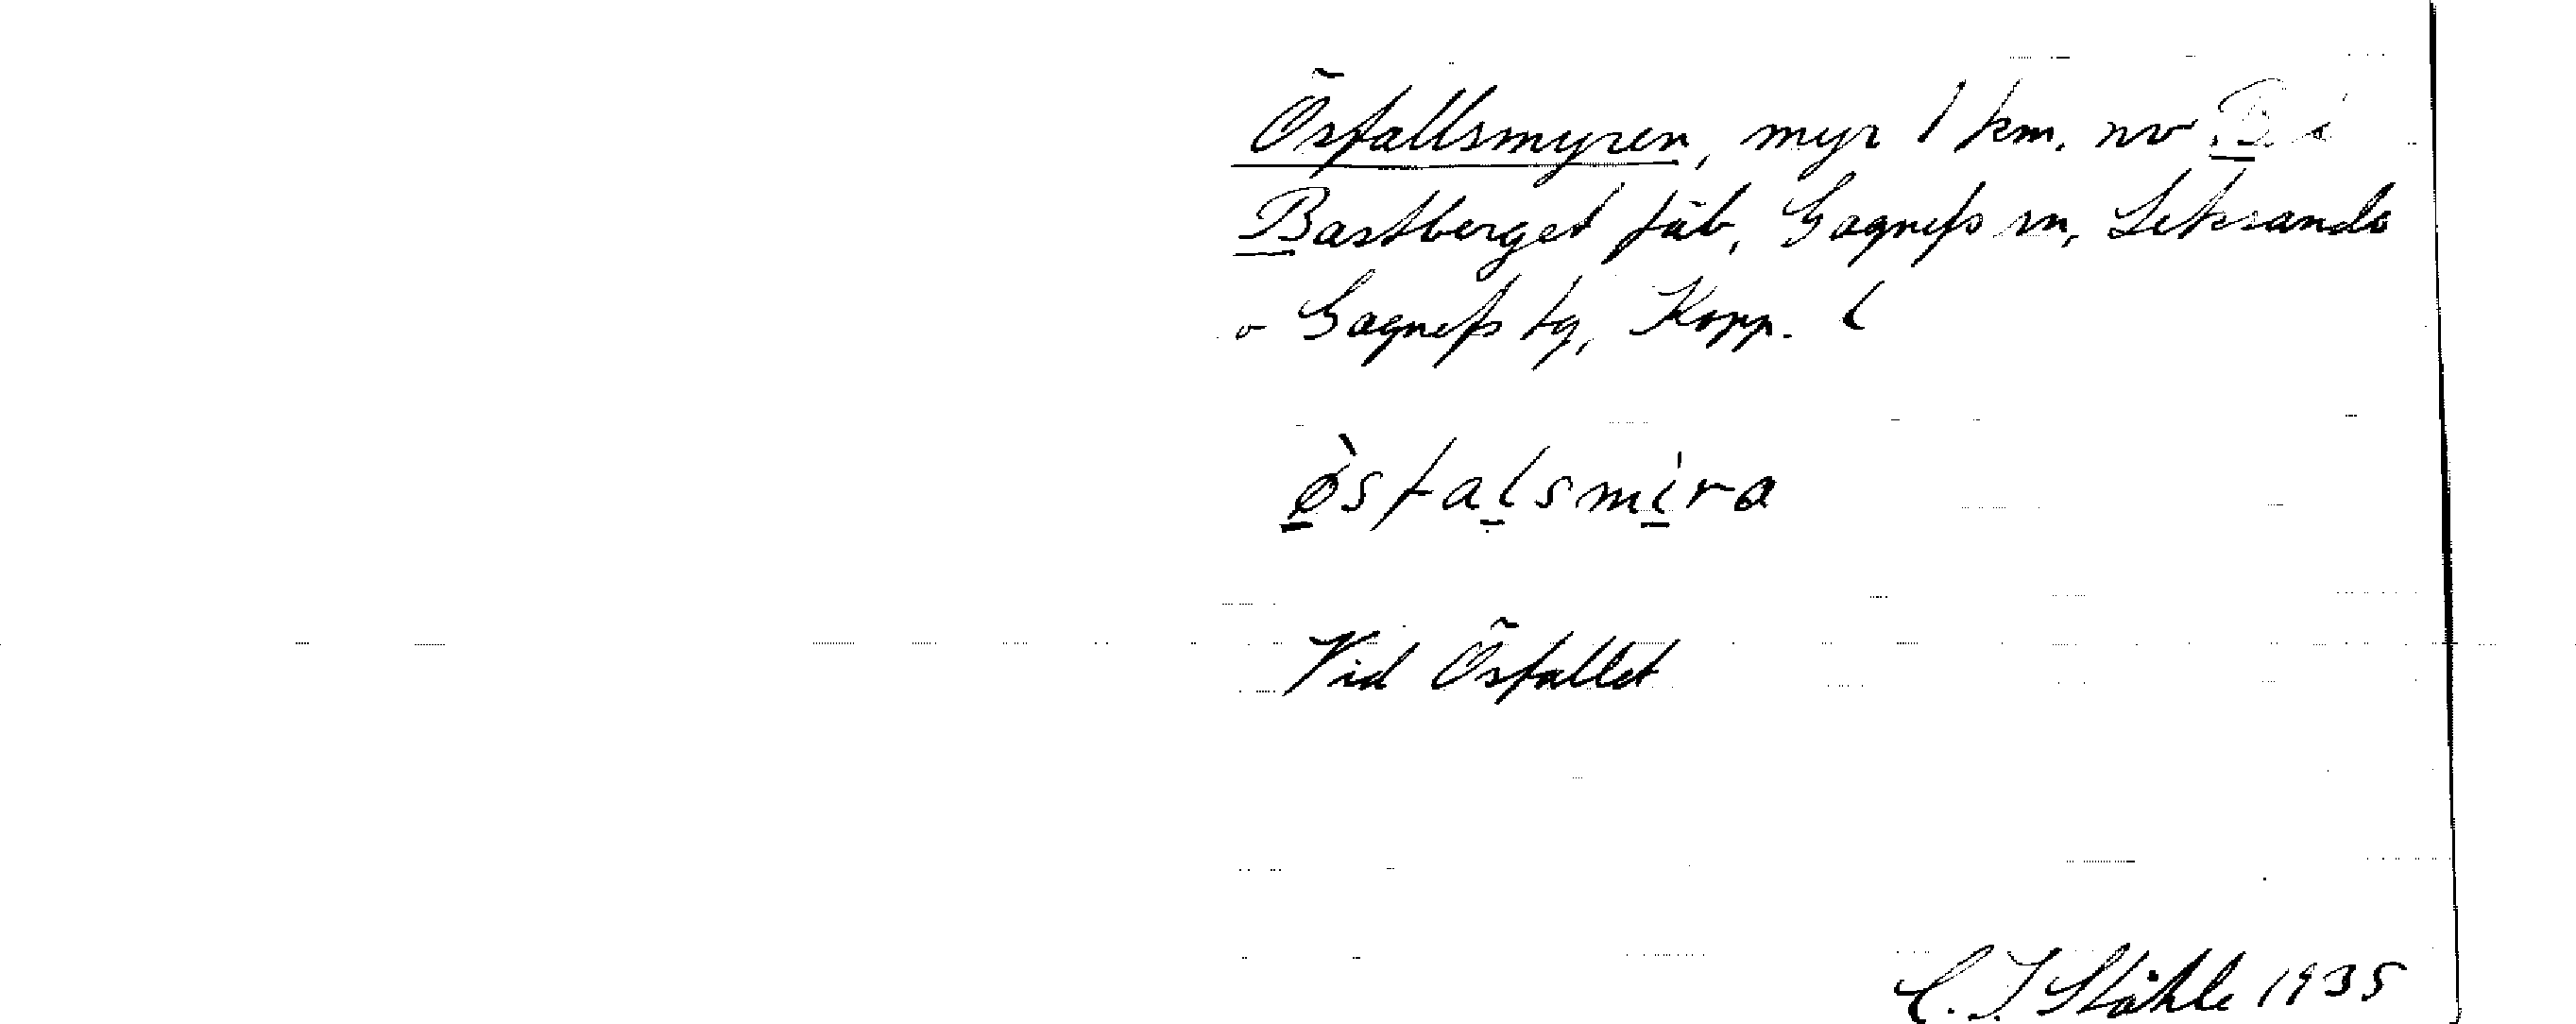 Ösfallsmyren, myr 1 km. nv B i
Bastberget fäb, Gagnefs sn, Leksands
o Gagnefs tg, Kopp. l
ø̀sfalsmira
Vid Ösfallet
C. I. Ståhle 1935